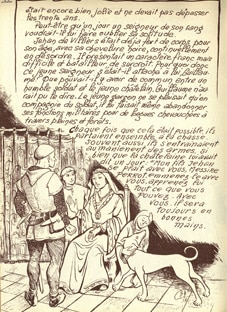 était encore bien jolie et ne devait pas dépasser
les trente ans.
Peut-être qu'un jour un seigneur de son rang
voudrait-il lui faire oublier sa solitude.
Jehan de Villiers était déjà fort de corps pour
son âge, avec sa chevelure noire, continuellement
en désordre. Il présentait un caractère franc mais
difficile et batailleur, de surcroît. Pourquoi donc
ce jeune seigneur s'était-il attaché à lui, Guillaume?
Que pouvait-il y avoir de commun entre un
humble soldat et le jeune châtelain, Guillaume n'aurait
pu le dire. Le jeune garçon ne se plaisait qu'en
compagnie du soldat, et lui faisait même abandonner
ses fonctions militaires pour de longues chevauchées à
travers plaines et forêts.
Chaque fois que cela était possible, ils
partaient ensemble, à la chasse.
Souvent aussi, ils s'entraînaient
au maniement des armes, si
bien que la châtelaine lui avait
dit un jour: "Mon fils Jehan
se plait avec vous, Messire
Perrot, emmenez-le avec
vous, apprenez-lui
tout ce que vous
pouvez. Avec
vous, il sera
toujours en
bonnes
mains.